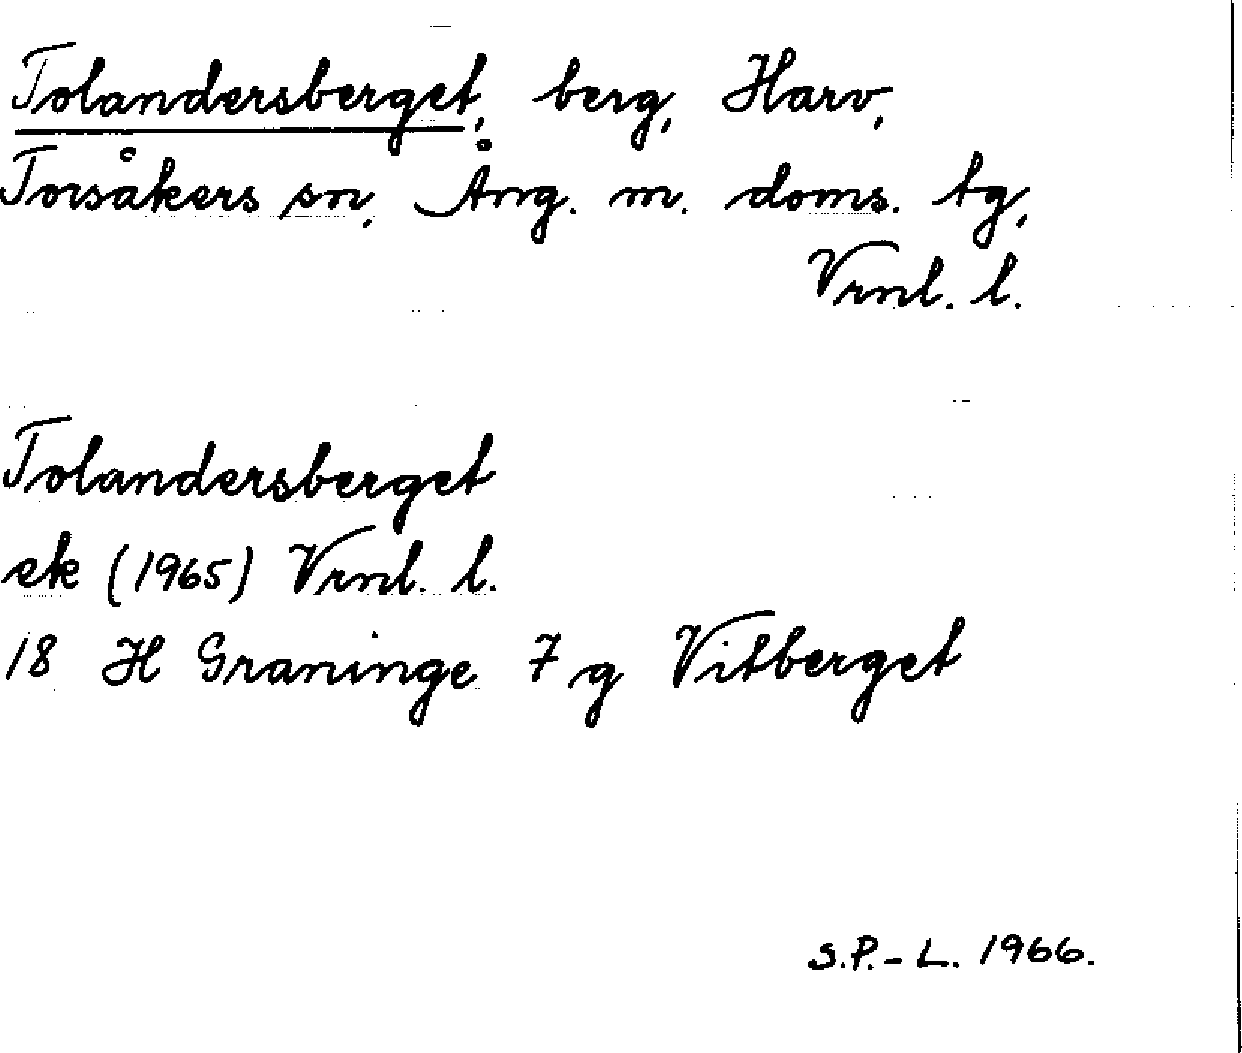 Tolandersberget, berg, Harv,
Torsåkers sn, Ång. m. doms. tg,
Vrnl. l.
Tolandersberget
ek (1965) Vrnl. l.
18 H Graninge 7 g Vitberget
S.P.-L. 1966.